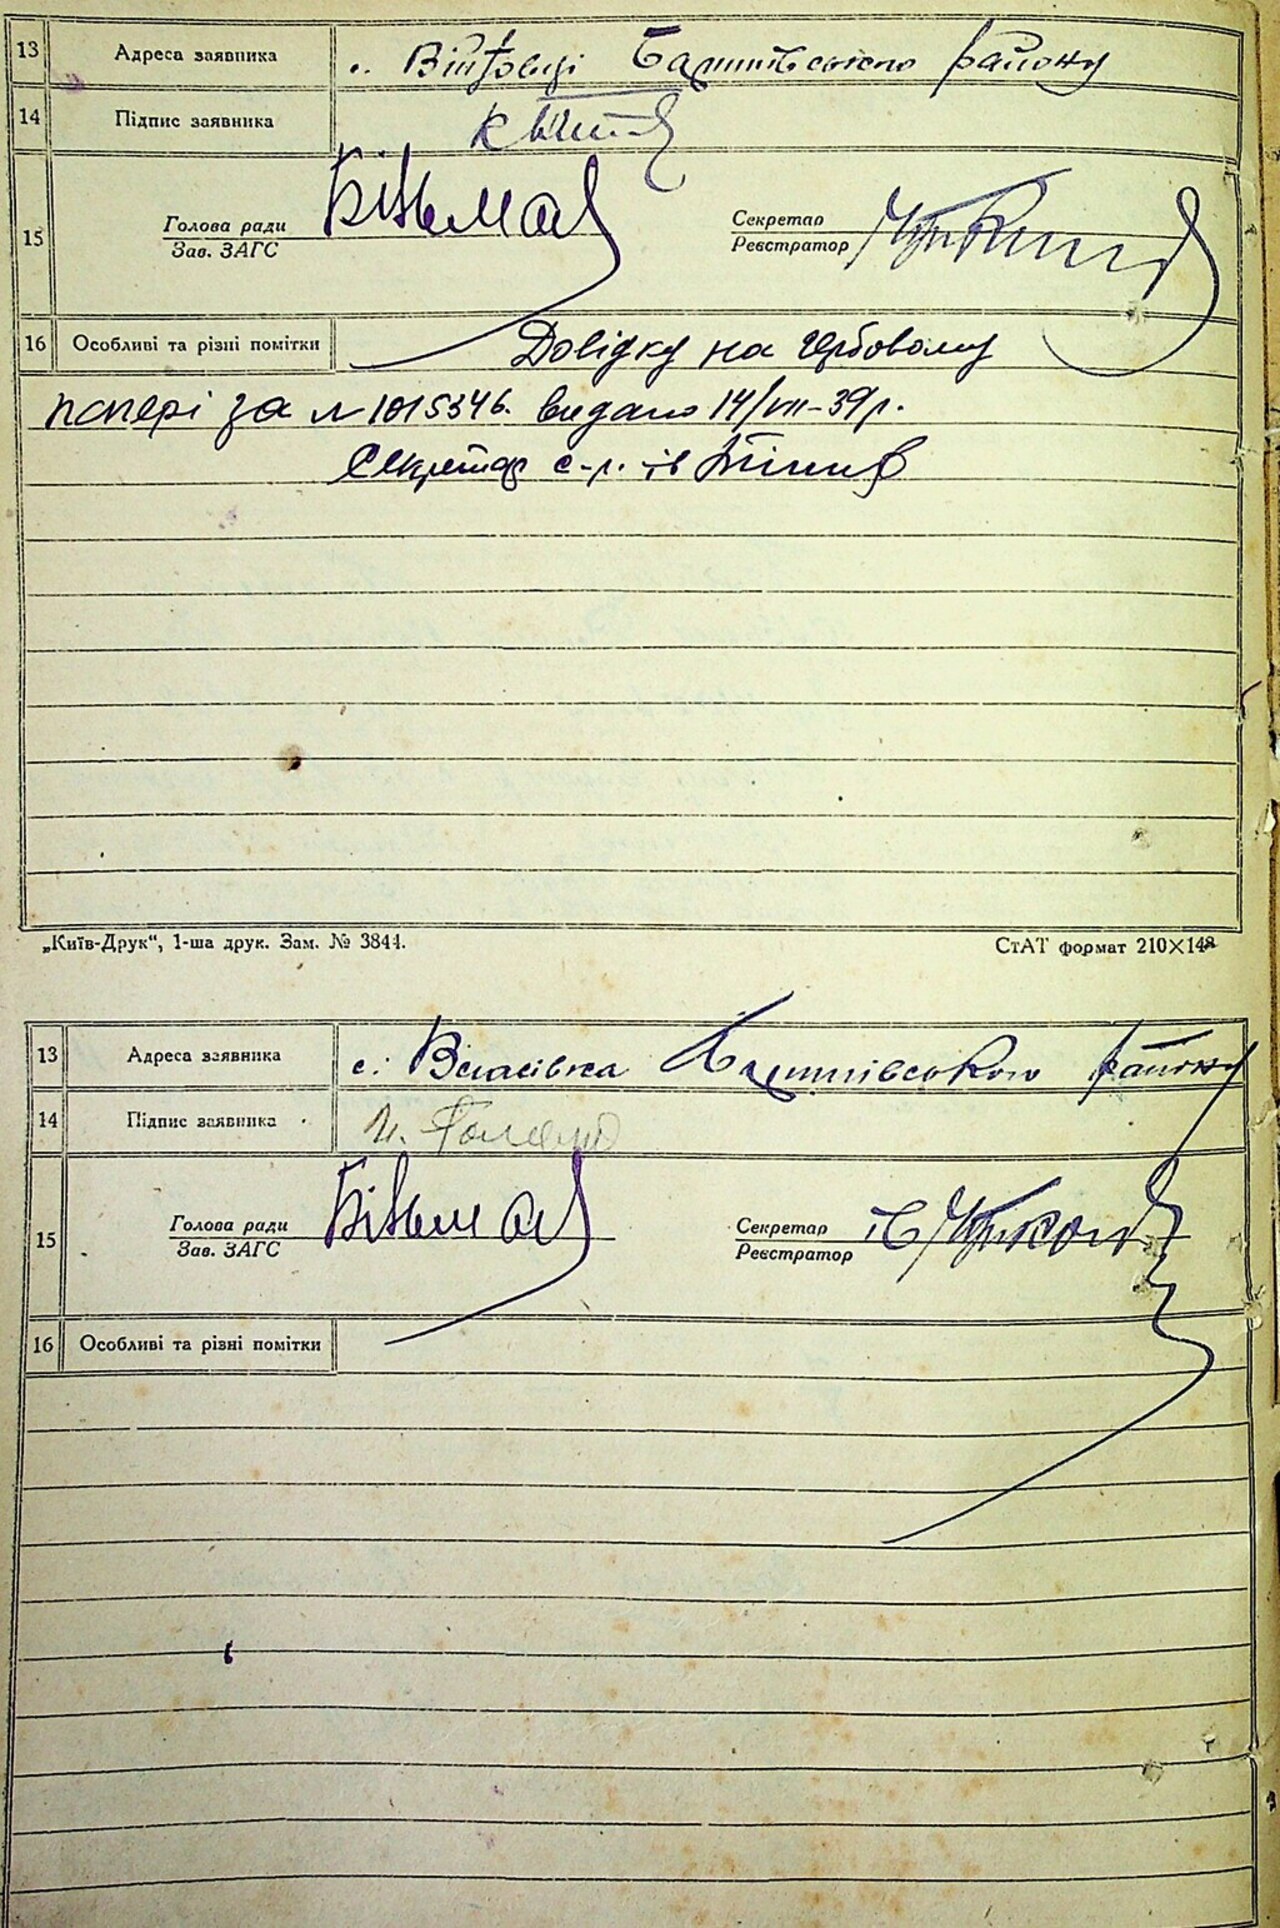 13 Адреса заявника с. Війтовці району
14 Підпис заявника
15 Голова ради Секретар
Зав. ЗАГС Реєстратор
16 Особливі та різні помітки Довідку на гербовому
папері за № 1015346. видано 14/VII-39 р.
Секретар с-р.
„Київ-Друк“, 1-ша друк. Зам. № 3844. СтАТ формат 210×148
13 Адреса заявника с. Власівка району
14 Підпис заявника
15 Голова ради Секретар
Зав. ЗАГС Реєстратор
16 Особливі та різні помітки